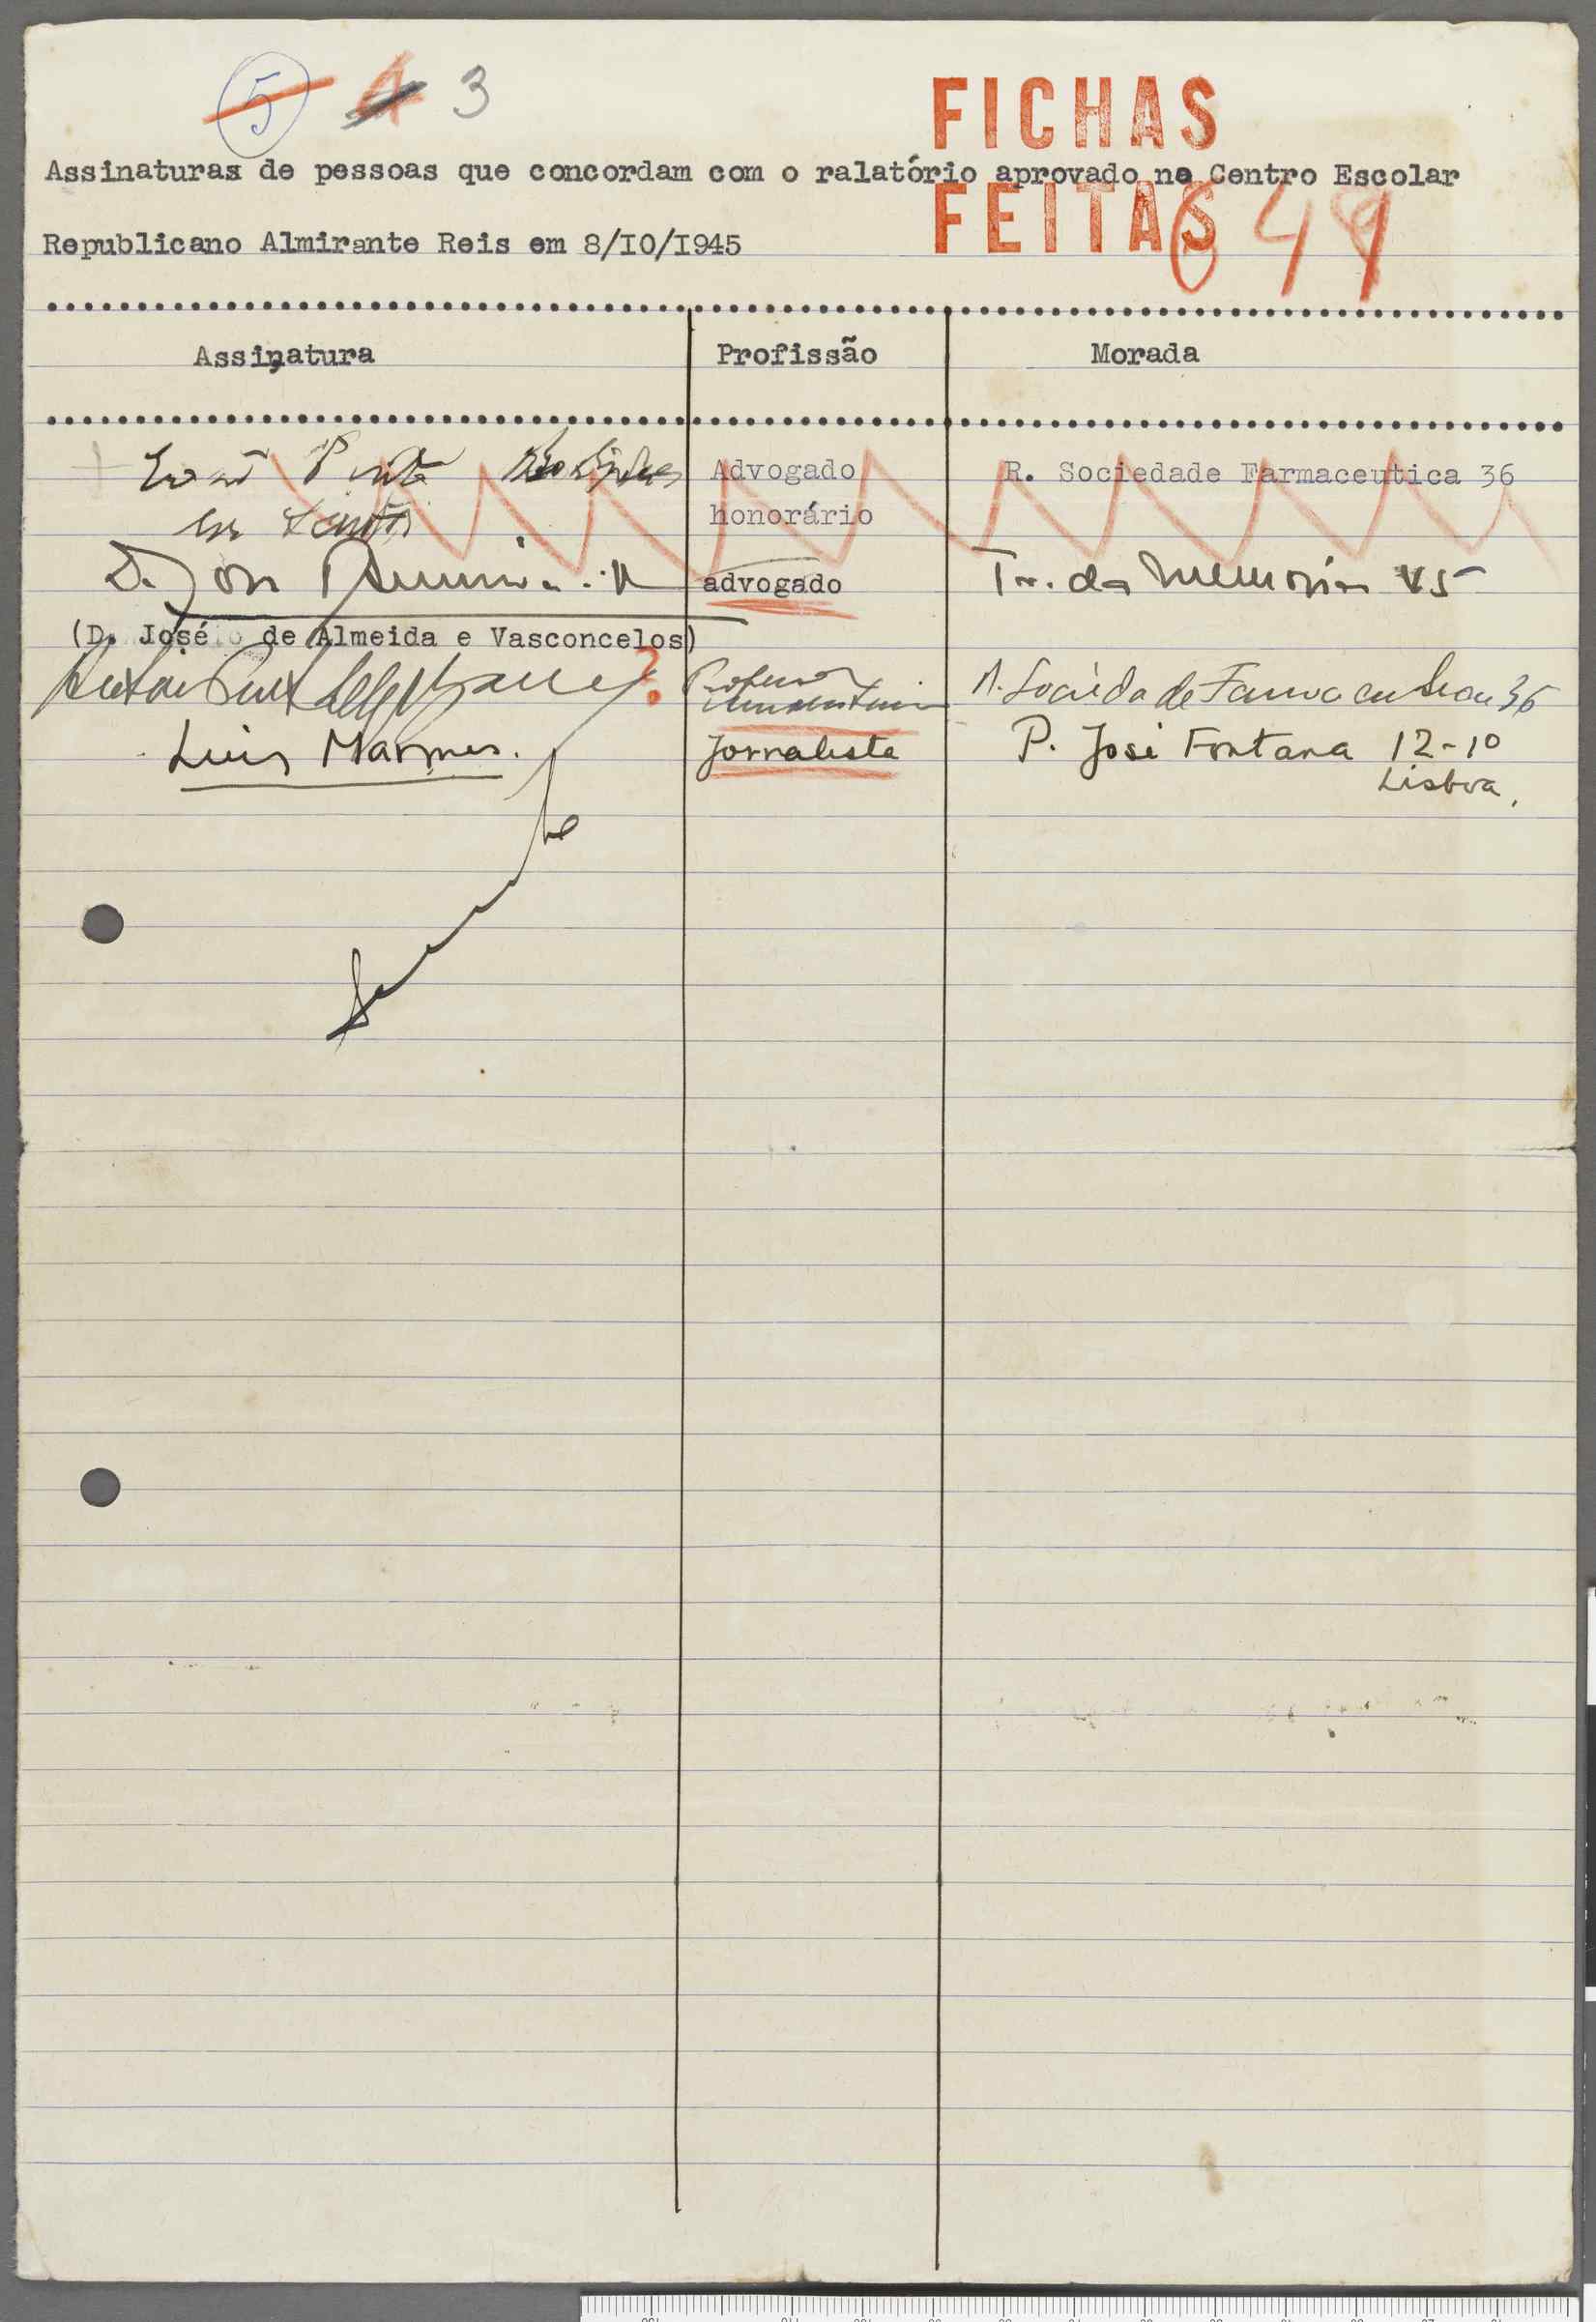 5 4 3
FICHAS
Assinaturas de pessoas que concordam com o ralatório aprovado no Centro Escolar
FEITAS
649
Republicano Almirante Reis em 8/IO/I945
Assinatura Profissão Morada
Advogado R. Sociedade Farmaceutica 36
honorário
D. José advogado Tr. da Memória 45
(D. José de Almeida e Vasconcelos)
? Professor R. Sociedade Farmaceutica 36
Luis Jornalista P. José Fontana 12-1º
Lisboa.